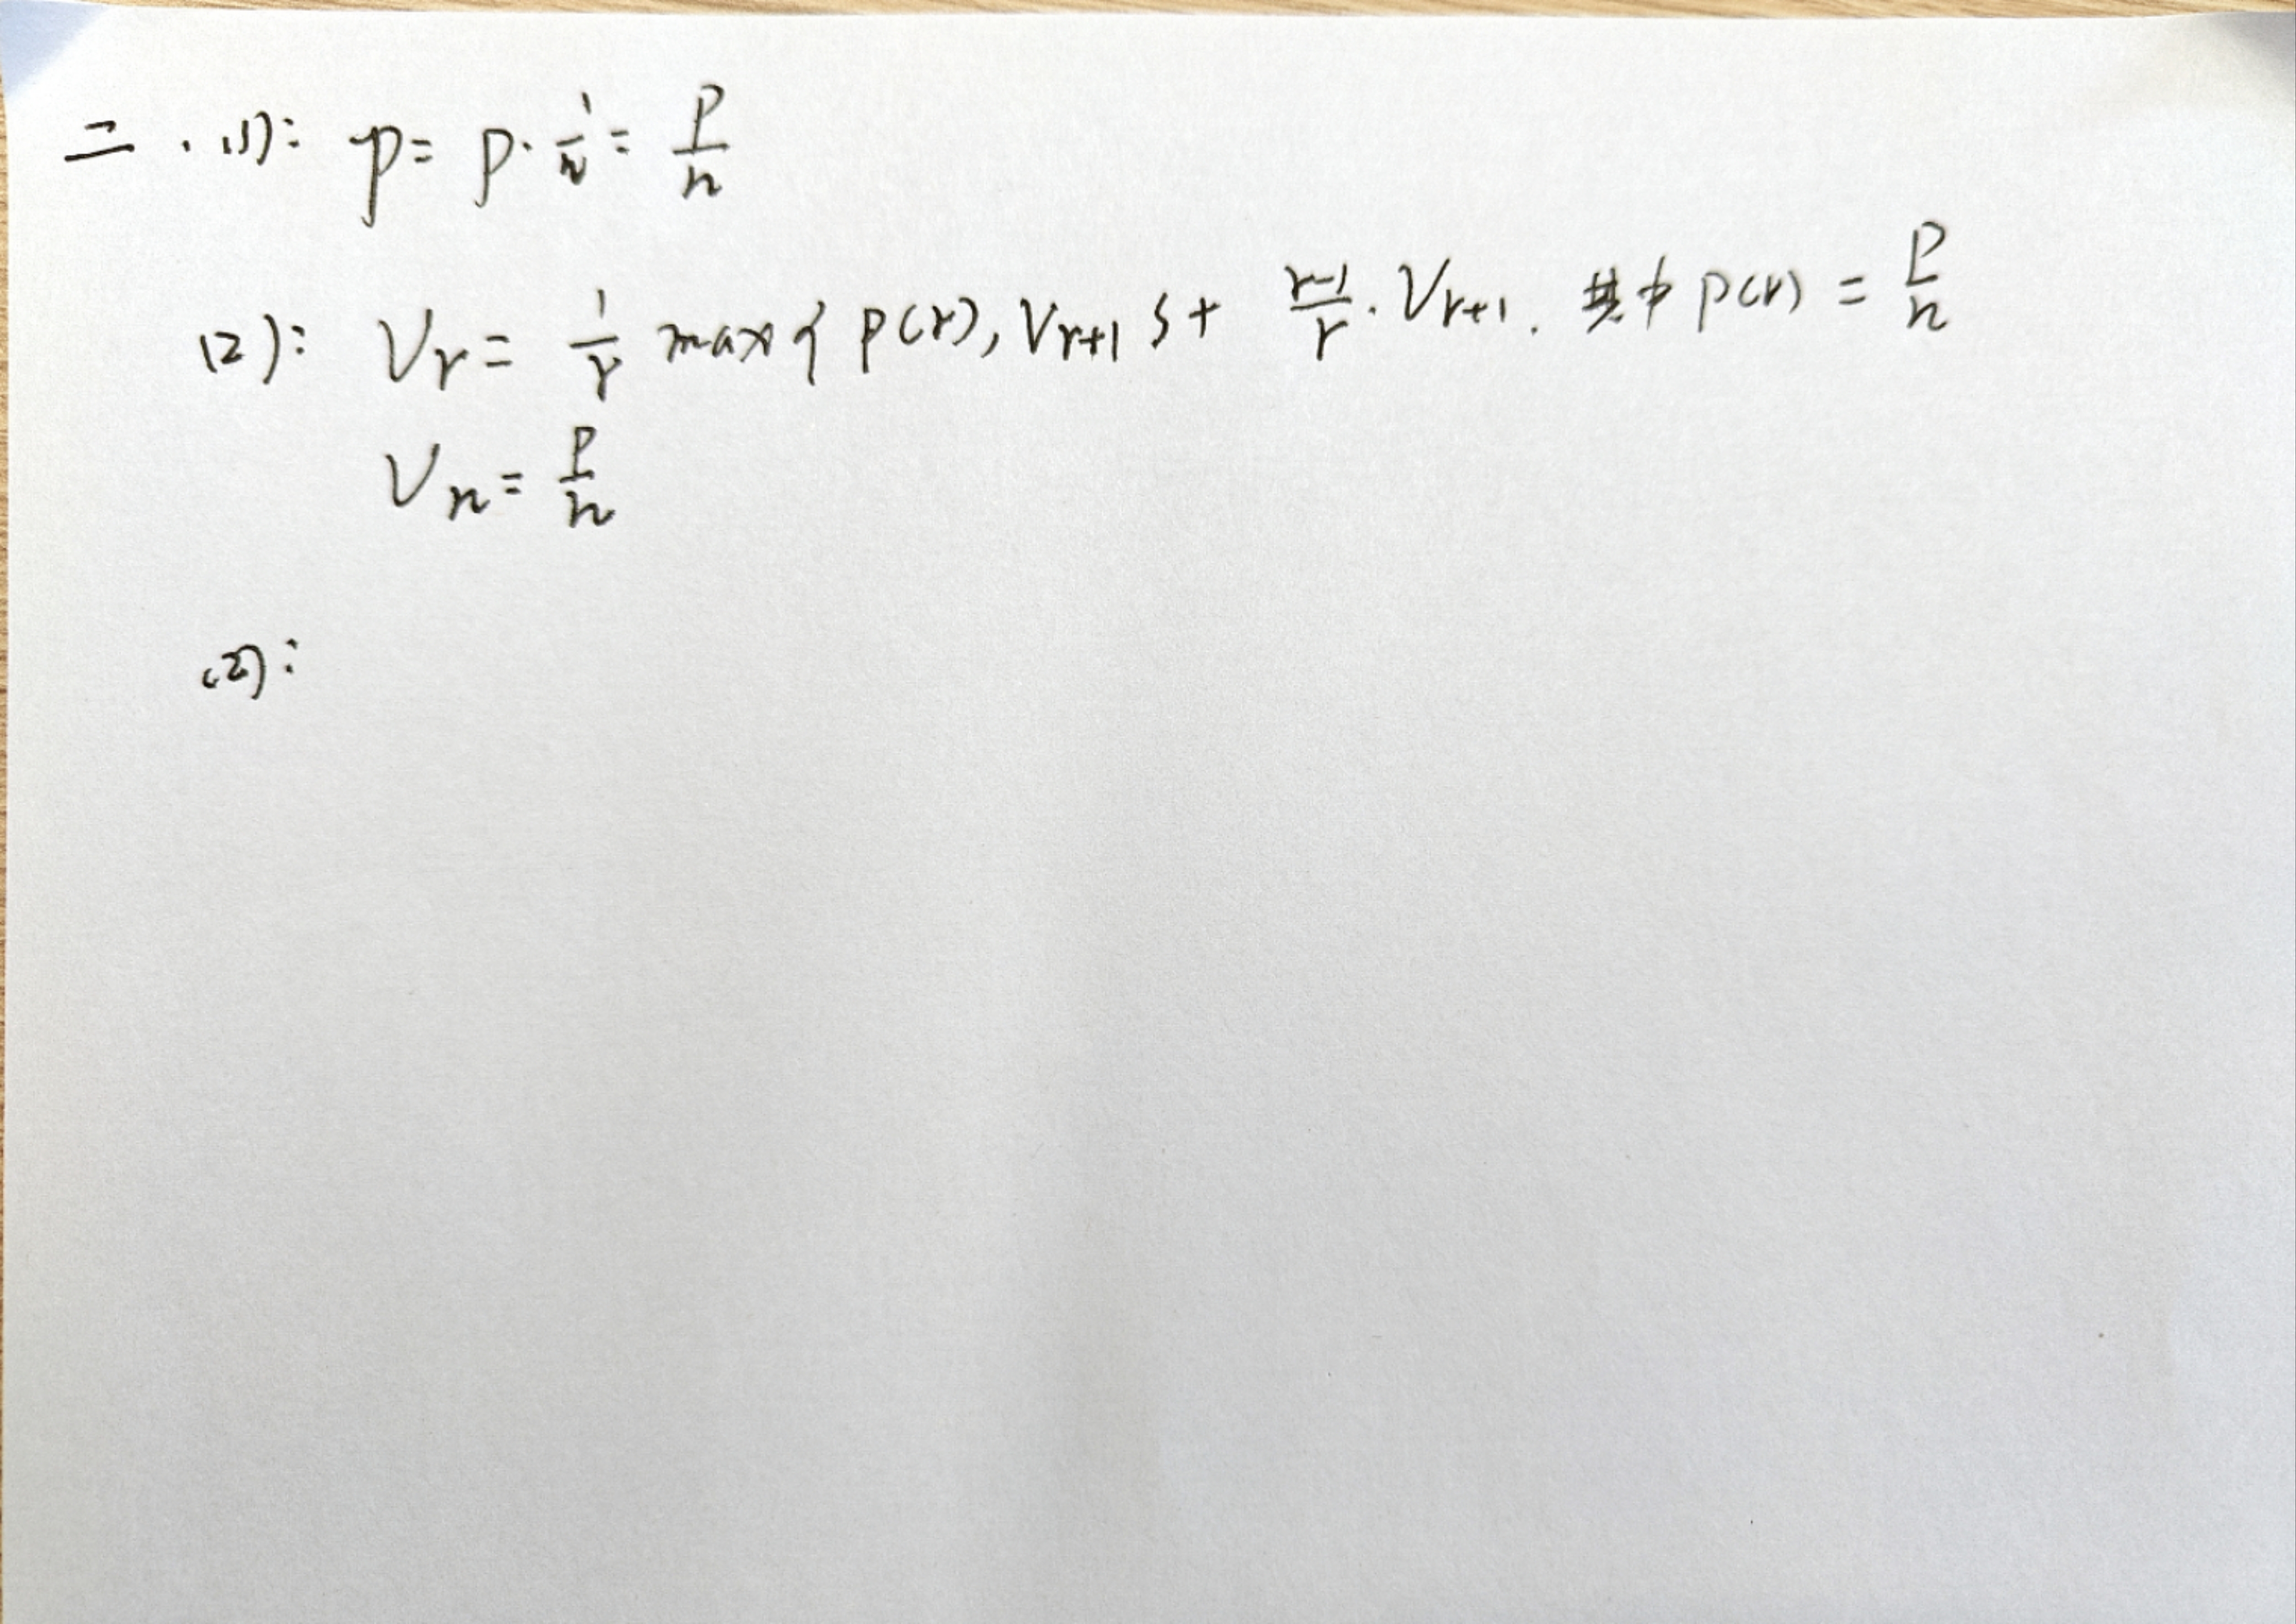 二.(1): p = p · 1/n = P/n
(2): Vr = 1/r max{p(r), Vr+1} + r-1/r · Vr+1. 其中 p(r) = P/n
Vn = P/n
(2):